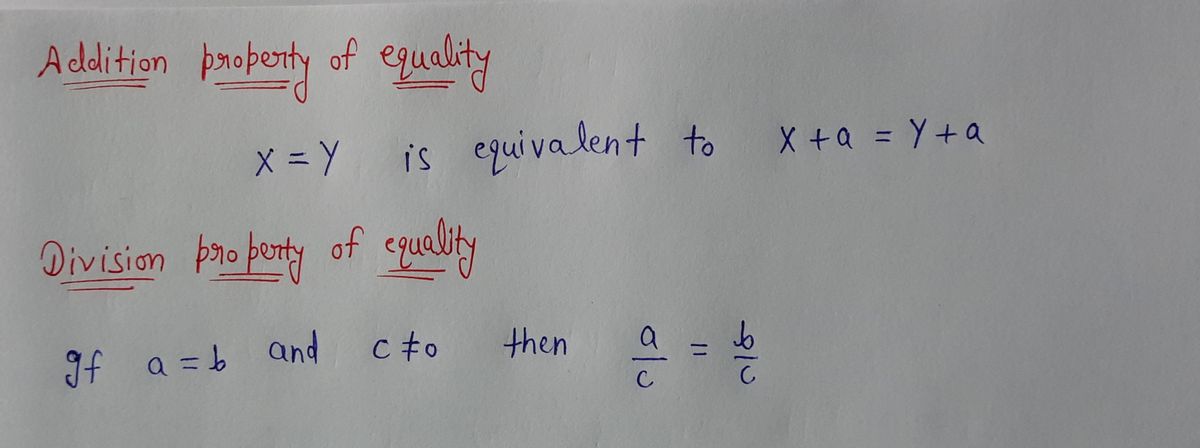 Addition property of equality
X = Y is equivalent to X + a = Y + a
Division property of equality
If a = b and c ≠ 0 then a/c = b/c